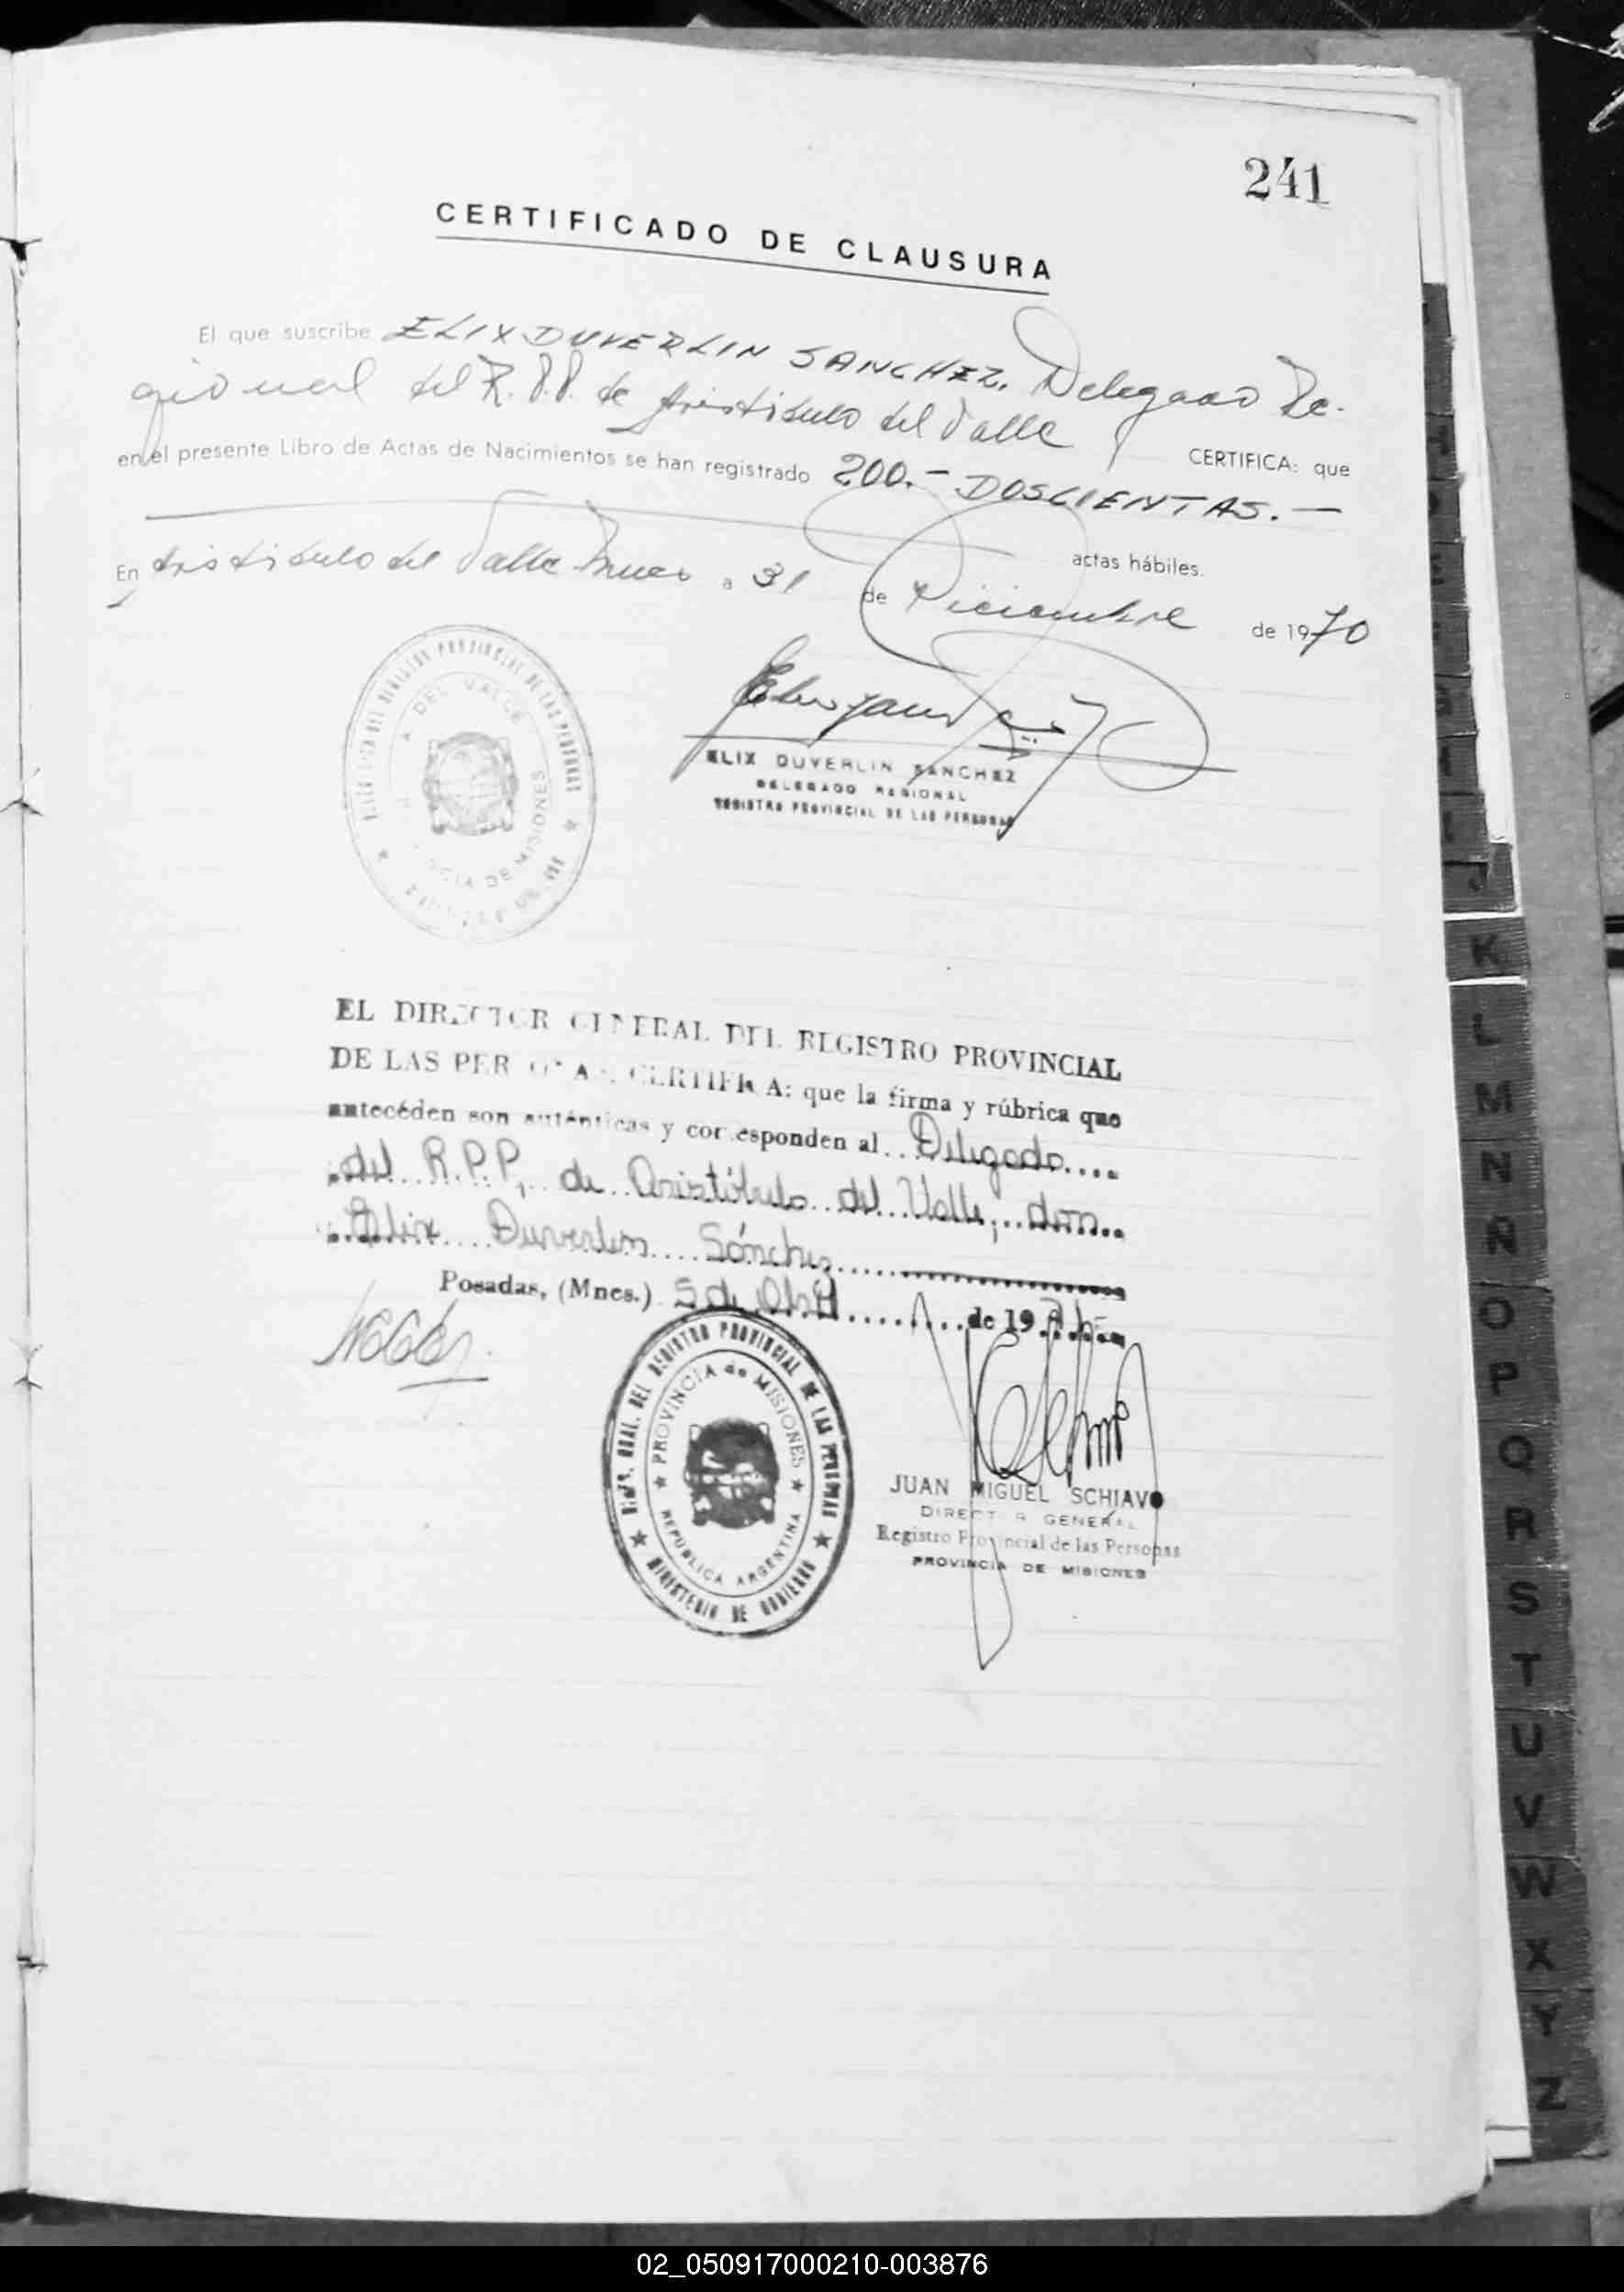 241
CERTIFICADO DE CLAUSURA
El que suscribe ELIX DUVERLIN SANCHEZ. Delegado Re-
gional del R.P.P. de Aristóbulo del Valle CERTIFICA: que
en el presente Libro de Actas de Nacimientos se han registrado 200.- DOSCIENTAS.-
actas hábiles.
En Aristóbulo del Valle Mnes a 31 de Diciembre de 1970
DEL VALLE
DE MISIONES
ELIX DUVERLIN SANCHEZ
DELEGADO REGIONAL
REGISTRO PROVINCIAL DE LAS PERSONAS
EL DIRECTOR GENERAL DEL REGISTRO PROVINCIAL
DE LAS PERSONAS, CERTIFICA: que la firma y rúbrica que
antecéden son auténticas y corresponden al Delegado
del R.P.P, de Aristóbulo del Valle, don
Elix Duverlin Sánchez
Posadas, (Mnes.) 5 de Abril de 1971
DIR. GRAL. DEL REGISTRO PROVINCIAL DE LAS PERSONAS
PROVINCIA de MISIONES
REPUBLICA ARGENTINA
MINISTERIO DE GOBIERNO
JUAN MIGUEL SCHIAVO
DIRECTOR GENERAL
Registro Provincial de las Personas
PROVINCIA DE MISIONES
J
K
L
M
N
Ñ
O
P
Q
R
S
T
U
V
W
X
Y
Z
02_050917000210-003876